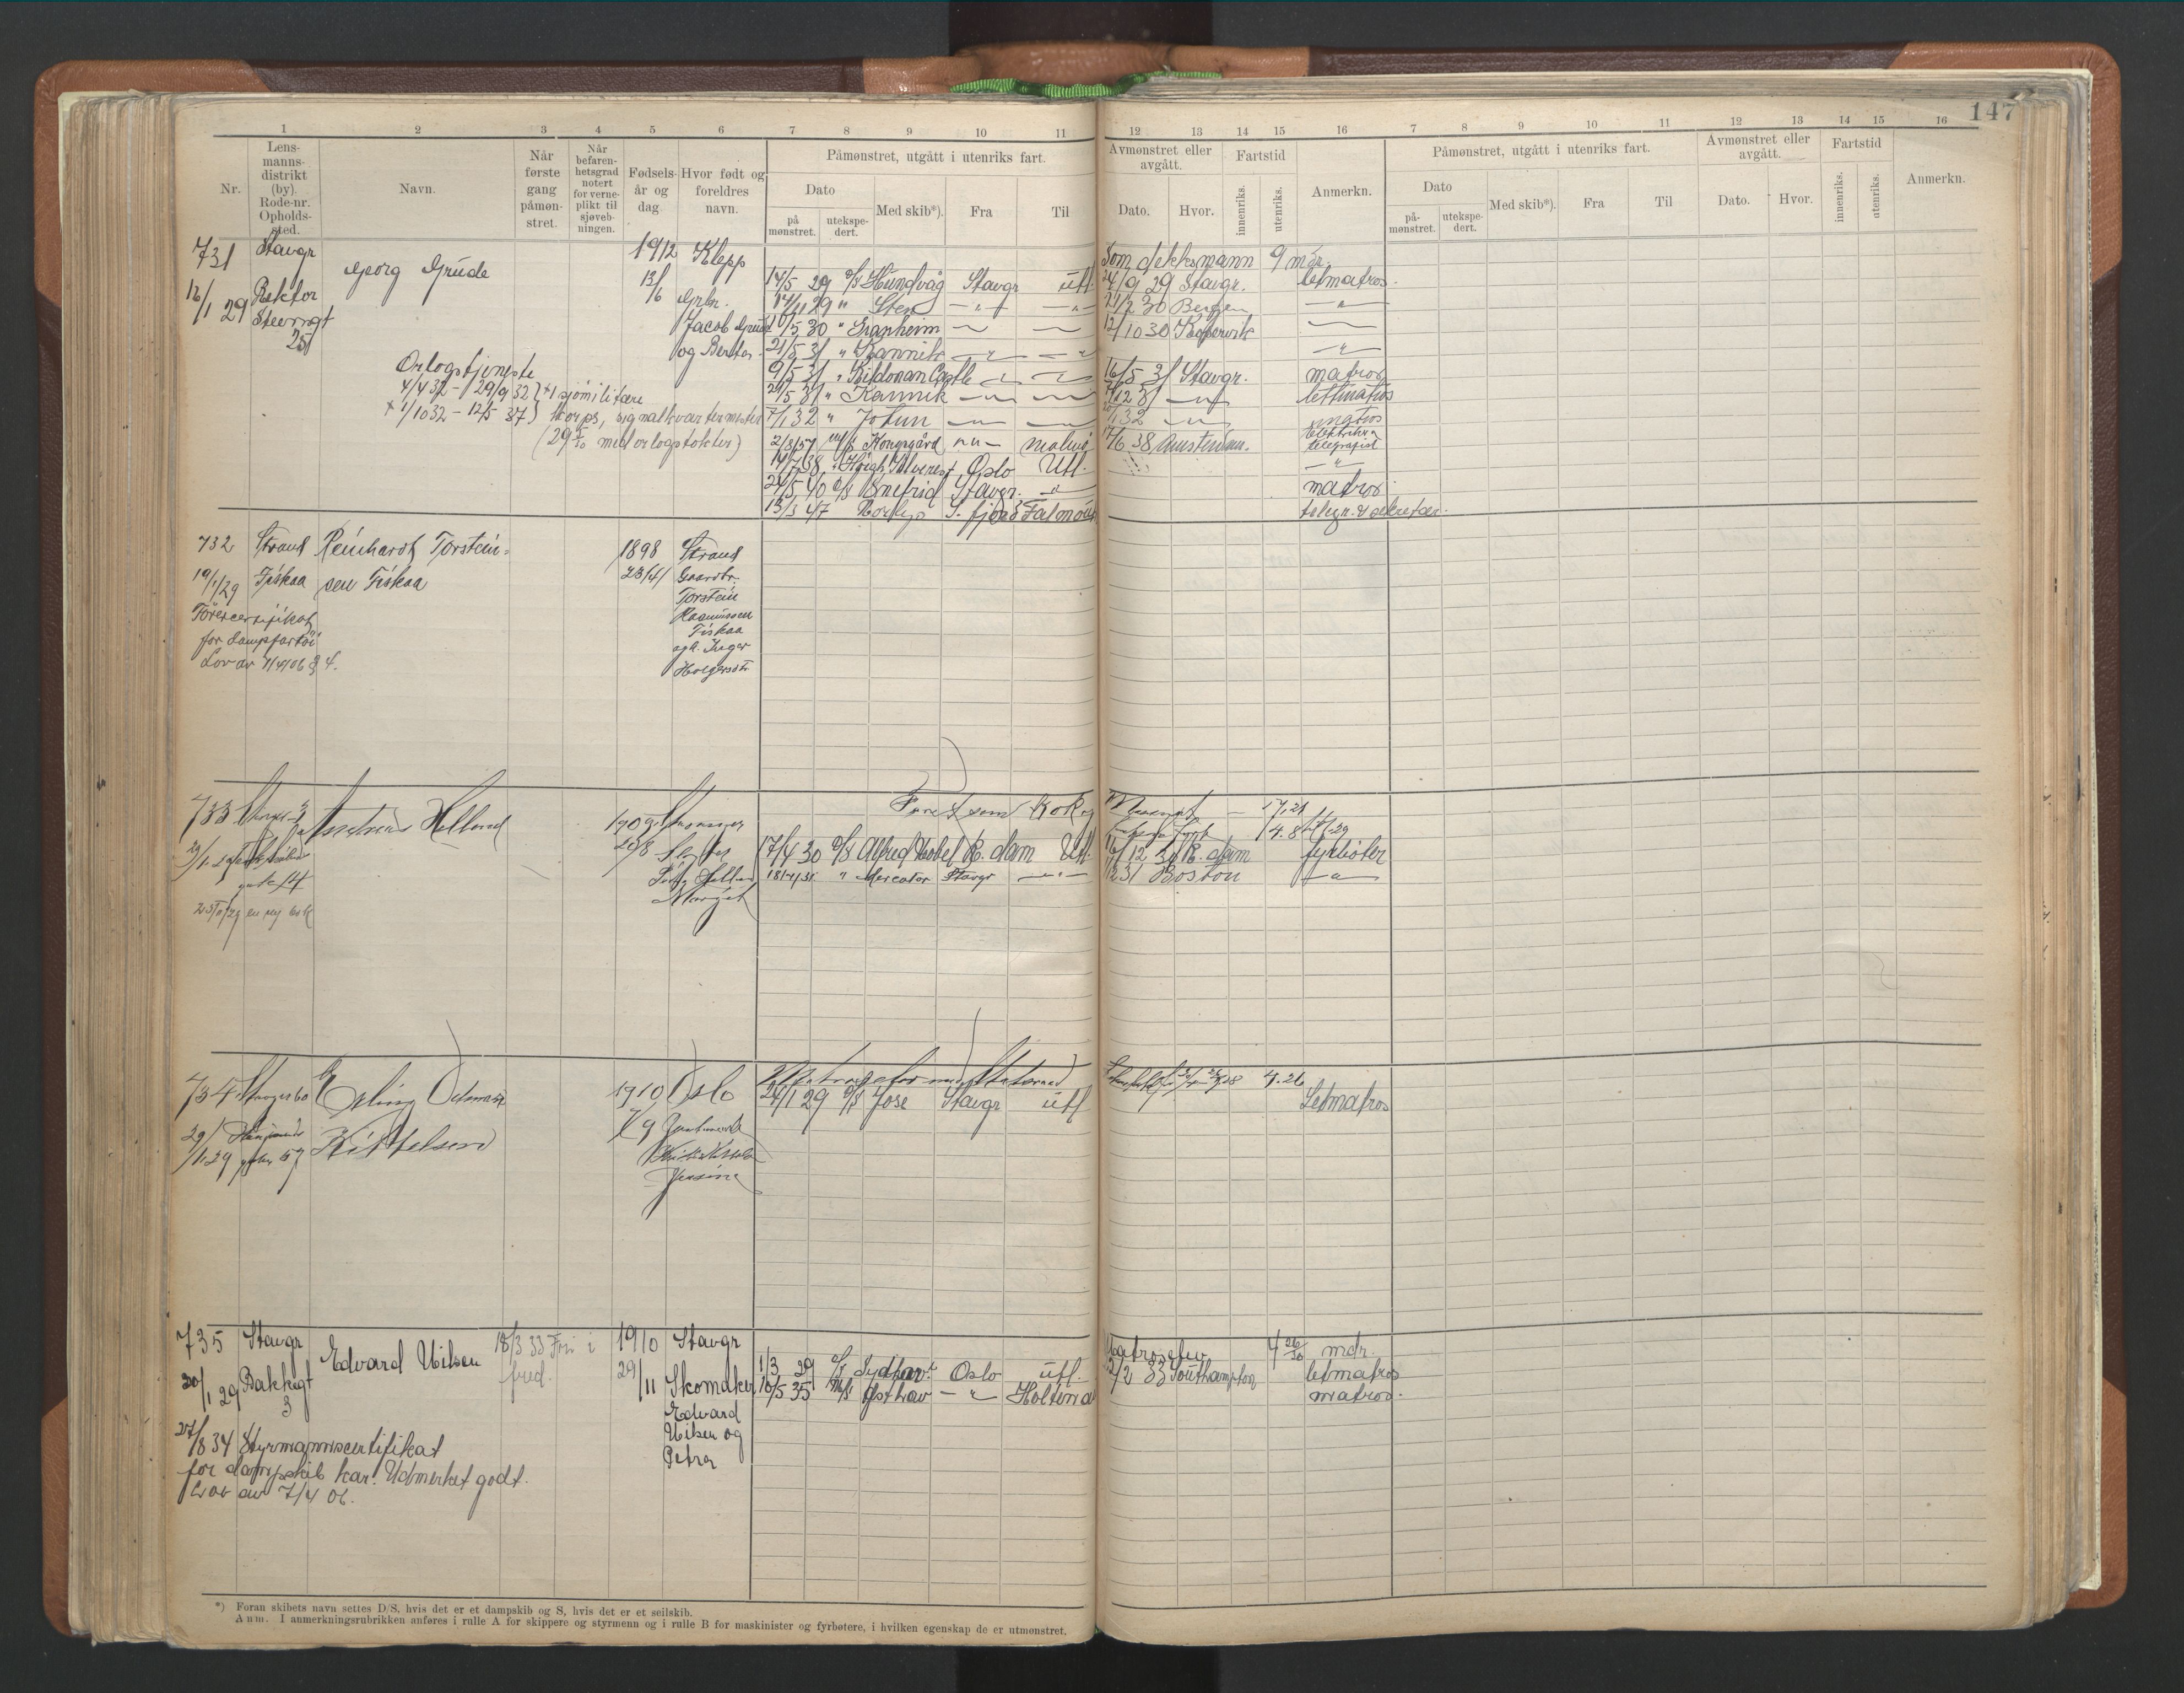 147
1 2 3 4 5 6 7 8 9 10 11 12 13 14 15 16 7 8 9 10 11 12 13 14 15 16
Nr.
Lens-
manns-
distrikt
(by).
Rode-nr.
Opholds-
sted.
Navn.
Når
første
gang
påmøn-
stret.
Når
befaren-
hetsgrad
notert
for verne-
plikt til
sjøveb-
ningen.
Fødsels-
år og
dag
Hvor født og
foreldres
navn.
Påmønstret, utgått i utenriks fart.
Dato
på
mønstret.
utekspe-
dert.
Med skib*).
Fra
Til
Avmønstret eller
avgått.
Dato.
Hvor.
Fartstid
innenriks.
utenriks.
Anmerkn.
Påmønstret, utgått i utenriks fart.
Dato
på-
mønstret.
utekspe-
dert.
Med skib*).
Fra
Til
Avmønstret eller
avgått.
Dato.
Hvor.
Fartstid
innenriks.
utenriks.
Anmerkn.
731 Stavgr
16/1 29 Rektor
25
Georg Grude
1912
13/6
Klepp
Grbr.
Jacob Grude
og Berta
Orlogstjeneste
4/4 32 - 29/9 32 } *1 sjømilitære
* 1/10 32 - 12/5 37 } korps, signalkvartermester
med orlogstokter)
Som dekksmann 9 mdr.
14/5 29 D/S Hundvåg Stavgr utl. 24/9 29 Stavgr. letmatros.
14/11 29 " Sten — " — — " — 21/2 30 Bergen — " —
/5 30 " Granheim — — 12/10 30 Kopervik —
21/3 31 " Kannik — " — — " — — " —
9/5 31 " Kildonan Castle — — 16/5 31 Stavgr. matros
29/5 31 " Kannik — " — — 12 31 — " — lettmatros
7/1 32 " Jotun — — /1 32 — " — matros
2/8/37 M/S Kongsgård — " — Malmø 17/6 38 Amsterdam. telegrafist
14/7 38 " Høigh Silverest Oslo Utl. — " —
24/5 40 D/S Snefrid Stavgr. — " — matros
13/3 47 Norlys S. fjord Falmouth telegr. & sekretær.
732 Strand Reinhardt Torstein-
19/1/29 Fiskaa sen Fiskaa
Førercertifikat
for dampfartøi
Lov av 7/4/06 § 4.
1898
23/4
Strand
Gaardbr.
Torstein
Rasmussen
Fiskaa
og h. Inger
Holgersdtr.
733
Andreas Helland
29/1 29
gate 14
23/11/29 en ny bok
1909
29/8
Helland
Margit
Faret som kok og
17/4 30 D/S Alfred Nobel R. dam Utl. 16/12 30 R. dam fyrbøter
18/4/31 " Mercator Stavgr — " — Boston — " —
734
Erling Odmar
Kittelsen
29/1 29
1910
7/9
Oslo
Jensine
24/1 29 D/S Jose Stavgr utl Letmatros
4.26
735 Stavgr
Edvard Nilsen
30/1 29 Bakkegt
3
18/3 33 Fri i
fred.
1910
29/11
Stavgr
Skomaker
Edvard
Nilsen og
Petra
Matroselev 4 26/30 mdr.
1/3 29 D/S Sydhav Oslo utl. /2 33 Southampton letmatros
16/5 35 M/S Østhav — " — Holtenau matros.
27/8 34 Styrmannscertifikat
for dampskib kar. Udmerket godt.
Lov av 7/4 06.
*) Foran skibets navn settes D/S, hvis det er et dampskib og S, hvis det er et seilskib.
Anm. I anmerkningsrubrikken anføres i rulle A for skippere og styrmenn og i rulle B for maskinister og fyrbøtere, i hvilken egenskap de er utmønstret.